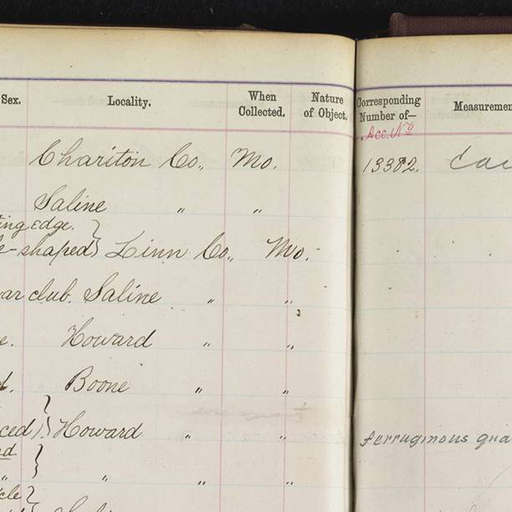 Sex. Locality. When Collected. Nature of Object. Corresponding Number of— Measuremen
Acc. No
Chariton Co., Mo. 13382.
Saline " "
ing edge. }
e-shaped} Linn Co., Mo.
ar club. Saline " "
e. Howard " "
d. Boone " "
ced} Howard " " ferruginous gra
" } " " "
cle}